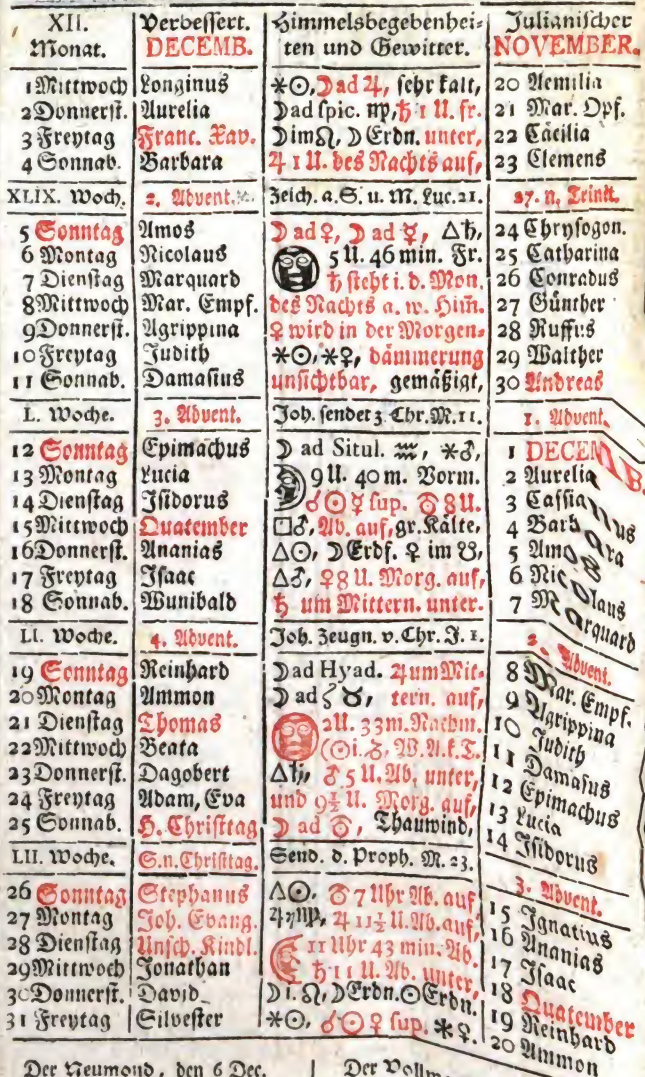 XII. Monat. | Verbessert. DECEMB. | Himmelsbegebenhei= ten und Gewitter. | Julianischer NOVEMBER.
1 Mittwoch | Longinus | ⚹☉, ☽ ad ♃, sehr kalt, | 20 Aemilia
2 Donnerst. | Aurelia | ☽ ad spic. ♍, ♄ 1 U. fr. | 21 Mar. Opf.
3 Freytag | Franc. Xav. | ☽ im ☊, ☽ Erdn. unter, | 22 Cäcilia
4 Sonnab. | Barbara | ♃ 1 U. des Nachts auf, | 23 Clemens
XLIX. Woch. | 2. Advent. | Zeich. a. S. u. M. Luc. 21. | 27. n. Trinit.
5 Sonntag | Amos | ☽ ad ♀, ☽ ad ☿, △♄, | 24 Chrysogon.
6 Montag | Nicolaus | 5 U. 46 min. Fr. | 25 Catharina
7 Dienstag | Marquard | ♄ steht i. d. Mon. | 26 Conradus
8 Mittwoch | Mar. Empf. | des Nachts a. w. Him̄. | 27 Günther
9 Donnerst. | Agrippina | ♀ wird in der Morgen= | 28 Ruffus
10 Freytag | Judith | ⚹☉, ⚹♀, dämmerung | 29 Walther
11 Sonnab. | Damasius | unsichtbar, gemäßigt, | 30 Andreas
L. Woche. | 3. Advent. | Joh. sendet z. Chr. M. 11. | 1. Advent.
12 Sonntag | Epimachus | ☽ ad Situl. ♒, ⚹♂, | 1 DECEMB.
13 Montag | Lucia | 9 U. 40 m. Vorm. | 2 Aurelia
14 Dienstag | Isidorus | ☌☉☿ sup. ⛢ 8 U. | 3 Cassianus
15 Mittwoch | Quatember | □♂, Ab. auf, gr. Kälte, | 4 Barbara
16 Donnerst. | Ananias | △☉, ☽ Erdf. ♀ im ☋, | 5 Amos
17 Freytag | Isaac | △♂, ♀ 8 U. Morg. auf, | 6 Nicolaus
18 Sonnab. | Wunibald | ♄ um Mittern. unter. | 7 Marquard
LI. Woche. | 4. Advent. | Joh. Zeugn. v. Chr. J. 1. | 2. Advent.
19 Sonntag | Reinhard | ☽ ad Hyad. ♃ um Mit= | 8 Mar. Empf.
20 Montag | Ammon | ☽ ad ζ ♉, tern. auf, | 9 Agrippina
21 Dienstag | Thomas | 2 U. 33 m. Nachm. | 10 Judith
22 Mittwoch | Beata | (☉ i. ♑, W. A. k. T. | 11 Damasus
23 Donnerst. | Dagobert | △♄, ♂ 5 U. Ab. unter, | 12 Epimachus
24 Freytag | Adam, Eva | und 9½ U. Morg. auf, | 13 Lucia
25 Sonnab. | H. Christtag | ☽ ad ⛢, Thauwind, | 14 Isidorus
LII. Woche. | S. n. Christtag. | Send. d. Proph. M. 23. | 3. Advent.
26 Sonntag | Stephanus | △☉, ⛢ 7 Uhr Ab. auf | 15 Ignatius
27 Montag | Joh. Evang. | ♃ γ ♍, ♃ 11½ U. Ab. auf, | 16 Ananias
28 Dienstag | Unsch. Kindl. | 11 Uhr 43 min. Ab. | 17 Isaac
29 Mittwoch | Jonathan | ♄ 11 U. Ab. unter, | 18 Quatember
30 Donnerst. | David | ☽ i. ☊, ☽ Erdn. ☉ Erdn. | 19 Reinhard
31 Freytag | Silvester | ⚹☉, ☌☉♀ sup. ⚹♀. | 20 Ammon
Der Neumond, den 6 Dec. | Der